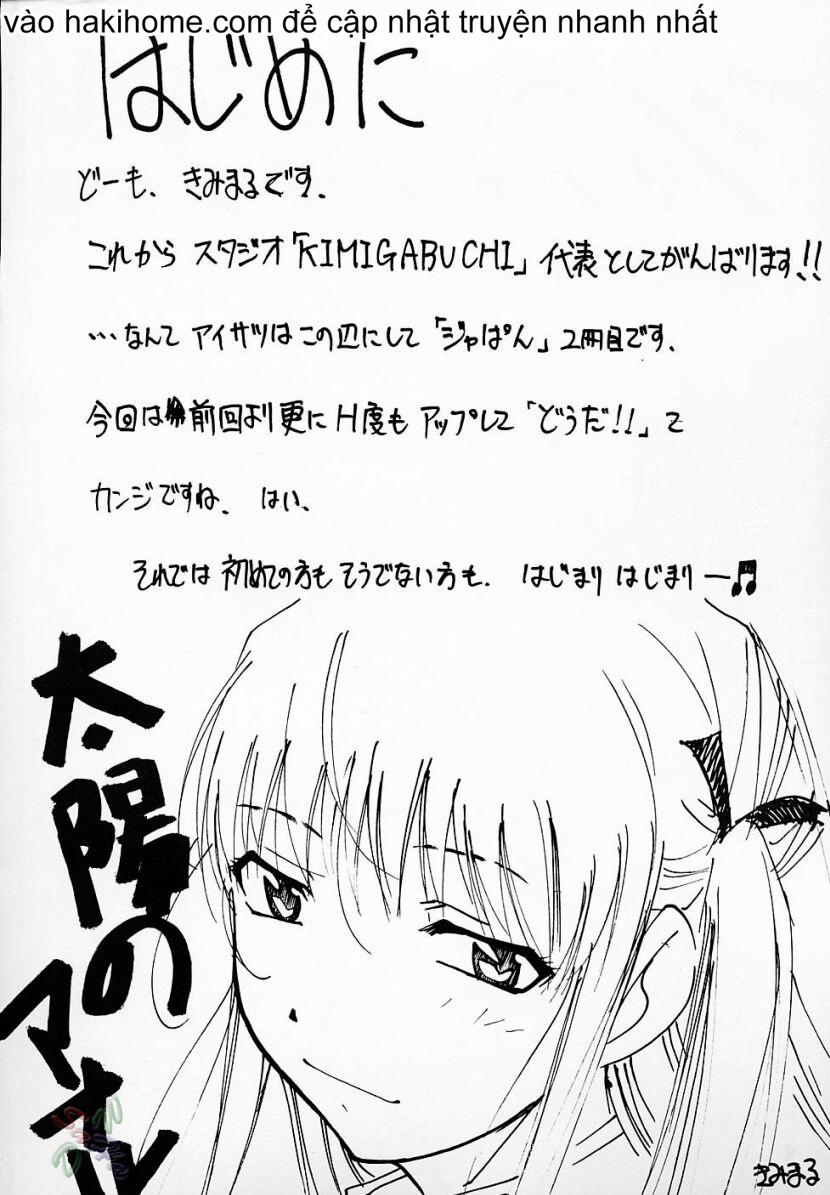 vào hakihome.com để cập nhật truyện nhanh nhất
はじめに
どーも、きみまるです。
これから スタジオ「KIMIGABUCHI」代表としてがんばります!!
…なんて アイサツはこの辺にして「ジャぱん」2冊目です。
今回は前回より更にH度もアップして「どうだ!!」て
カンジですね、はい、
それでは初めての方もそうでない方も、はじまりはじまりー♫
太陽の
マオル
きみまる